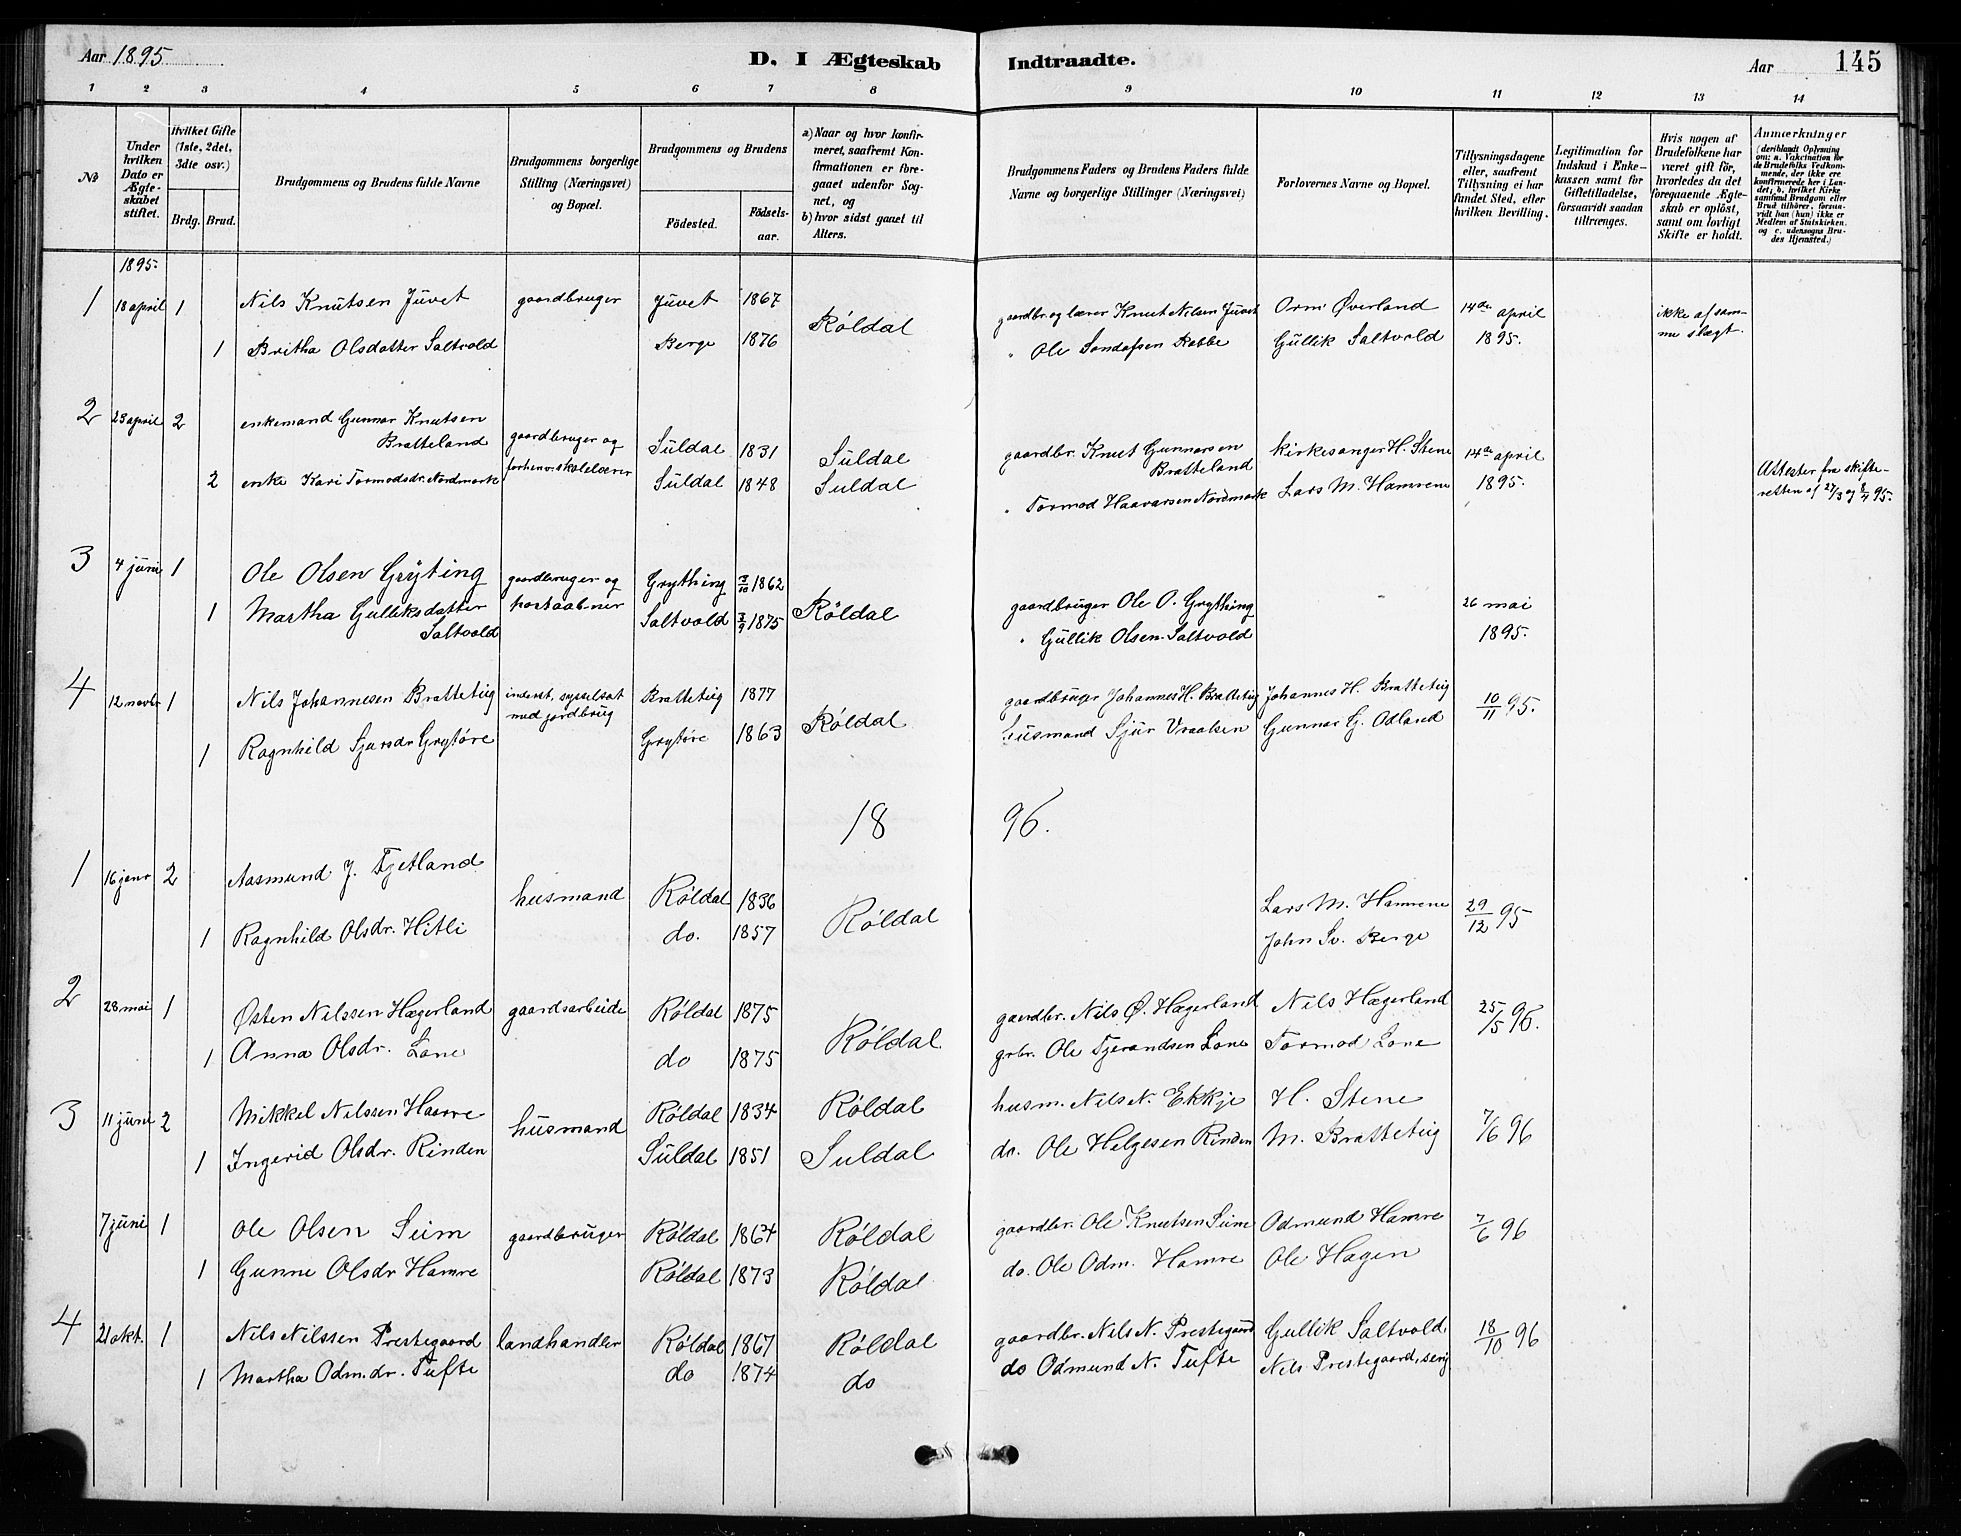 Aar 1895
D. I Ægteskab Indtraadte.
Aar 145
1 2 3 4 5 6 7 8 9 10 11 12 13 14
No
Under hvilken Dato er Ægteskabet stiftet.
Hvilket Gifte (1ste, 2det, 3die osv.)
Brdg. Brud.
Brudgommens og Brudens fulde Navne
Brudgommens borgerlige Stilling (Næringsvei) og Bopæl.
Brudgommens og Brudens
Födested. Födselsaar.
a) Naar og hvor konfirmeret, saafremt Konfirmationen er foregaaet udenfor Sognet, og
b) hvor sidst gaaet til Alters.
Brudgommens Faders og Brudens Faders fulde Navne og borgerlige Stillinger (Næringsvei)
Forlovernes Navne og Bopæl.
Tillysningsdagene eller, saafremt Tillysning ei har fundet Sted, efter hvilken Bevilling.
Legitimation for Indskud i Enkekassen samt for Giftetilladelse, forsaavidt saadan tiltrænges.
Hvis nogen af Brudefolkene har været gift för, hvorledes da det foregaaende Ægteskab er oplöst, samt om lovligt Skifte er holdt.
Anmærkninger (deriblandt Oplysning om: a. Vakcination for de Brudefolks Vedkommende, der ikke ere konfirmerede her i Landet; b. hvilket Kirkesamfund Brudgom eller Brud tilhörer, forsaavidt han (hun) ikke er Medlem af Statskirken, og c. udensogns Brudes Hjemsted.)
1895.
1 18 april 1 Nils Knutsen Juvet gaardbruger Juvet 1867 Röldal gaardbr. og lærer Knut Nilsen Juvet Orm Øverland 14de april ikke af sam-
1 Britha Olsdatter Saltvold Berge 1876 " Ole Sondofsen Rabbe Gullik Saltvold 1895. me slægt.
2 23 april 2 enkemand Gunnar Knutsen
Bratteland gaardbruger og Suldal 1831 Suldal gaardbr. Knut Gunnarsen
Bratteland Kirkesanger H. Stene 14de april
forhenv. skolelærer
2 enke Kari Tormodsdr. Nordmark Suldal 1848 Suldal " Tormod Haavarsen Nordmark Lars M. Hamrene 1895. Attester fra skifte-
retten af 27/3 og 8/4 95.
3 4 juni 1 Ole Olsen Grÿting gaardbruger og Grything 3/10 1862 Röldal gaardbruger Ole O. Grything 26 mai
1 Martha Gulliksdatter
Saltvold postaabner Saltvold 3/9 1875 " Gullik Olsen Saltvold 1895.
4 12 novbr 1 Nils Johannesen Bratteteig inderst, sysselsat
med jordbrug Bratteteig 1877 Röldal gaardbruger Johannes H. Bratteteig Johannes H. Bratteteig 10/11 95.
1 Ragnhild Sjursdr Grytöre Grytöre 1863 husmand Sjur Vraalsen Gunnar G. Odland
1896.
1 16 janr 2 Aasmund J. Fjetland husmand Röldal 1836 Röldal Lars M. Hamrene 29/12 95
1 Ragnhild Olsdr. Hitli do. 1857 John Sv. Berge
2 28 mai 1 Østen Nilssen Hægerland gaardsarbeide Röldal 1875 Röldal gaardbr. Nils Ø. Hægerland Nils Hægerland 25/5 96.
1 Anna Olsdr. Lone do 1875 grbr. Ole Tjerandsen Lone Tormod Lone
3 11 juni 2 Mikkel Nilssen Hamre husmand Röldal 1834 Röldal husm. Nils N. Ekkje H. Stene 7/6 96
1 Ingerid Olsdr. Rinden Suldal 1851 Suldal do. Ole Helgesen Rinden M. Bratteteig
7 juni 1 Ole Olsen Seim gaardbruger Röldal 1864 Röldal gaardbr. Ole Knutsen Seim Odmund Hamre 7/6 96
1 Gunne Olsdr Hamre Röldal 1873 Röldal do. Ole Odm. Hamre Ole Hagen
4 21 okt. 1 Nils Nilssen Prestegaard landhandler Röldal 1867 Röldal gaardbr. Nils N. Prestegaard Gullik Saltvold, 18/10 96
1 Martha Odm.dr. Tufte do 1874 do do Odmund N. Tufte Nils Prestegaard,